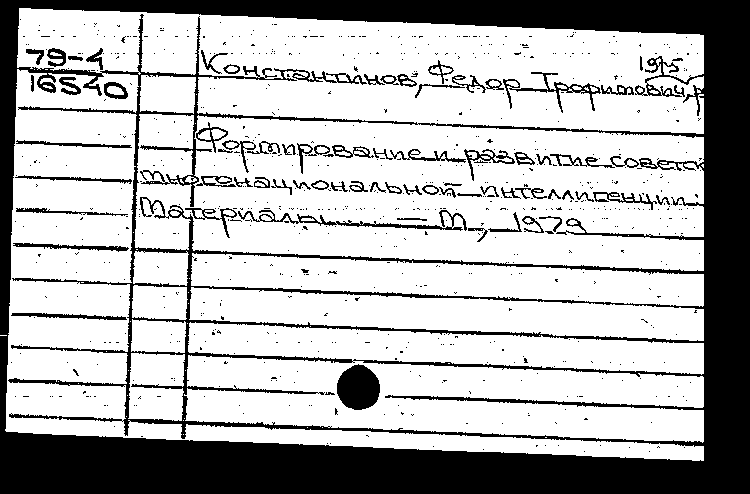 79-4
16540
1915
Константинов, Федор Трофимович,
Формирование и развитие советск
многонациональной интеллигенции:
Материалы ..... — М., 1979